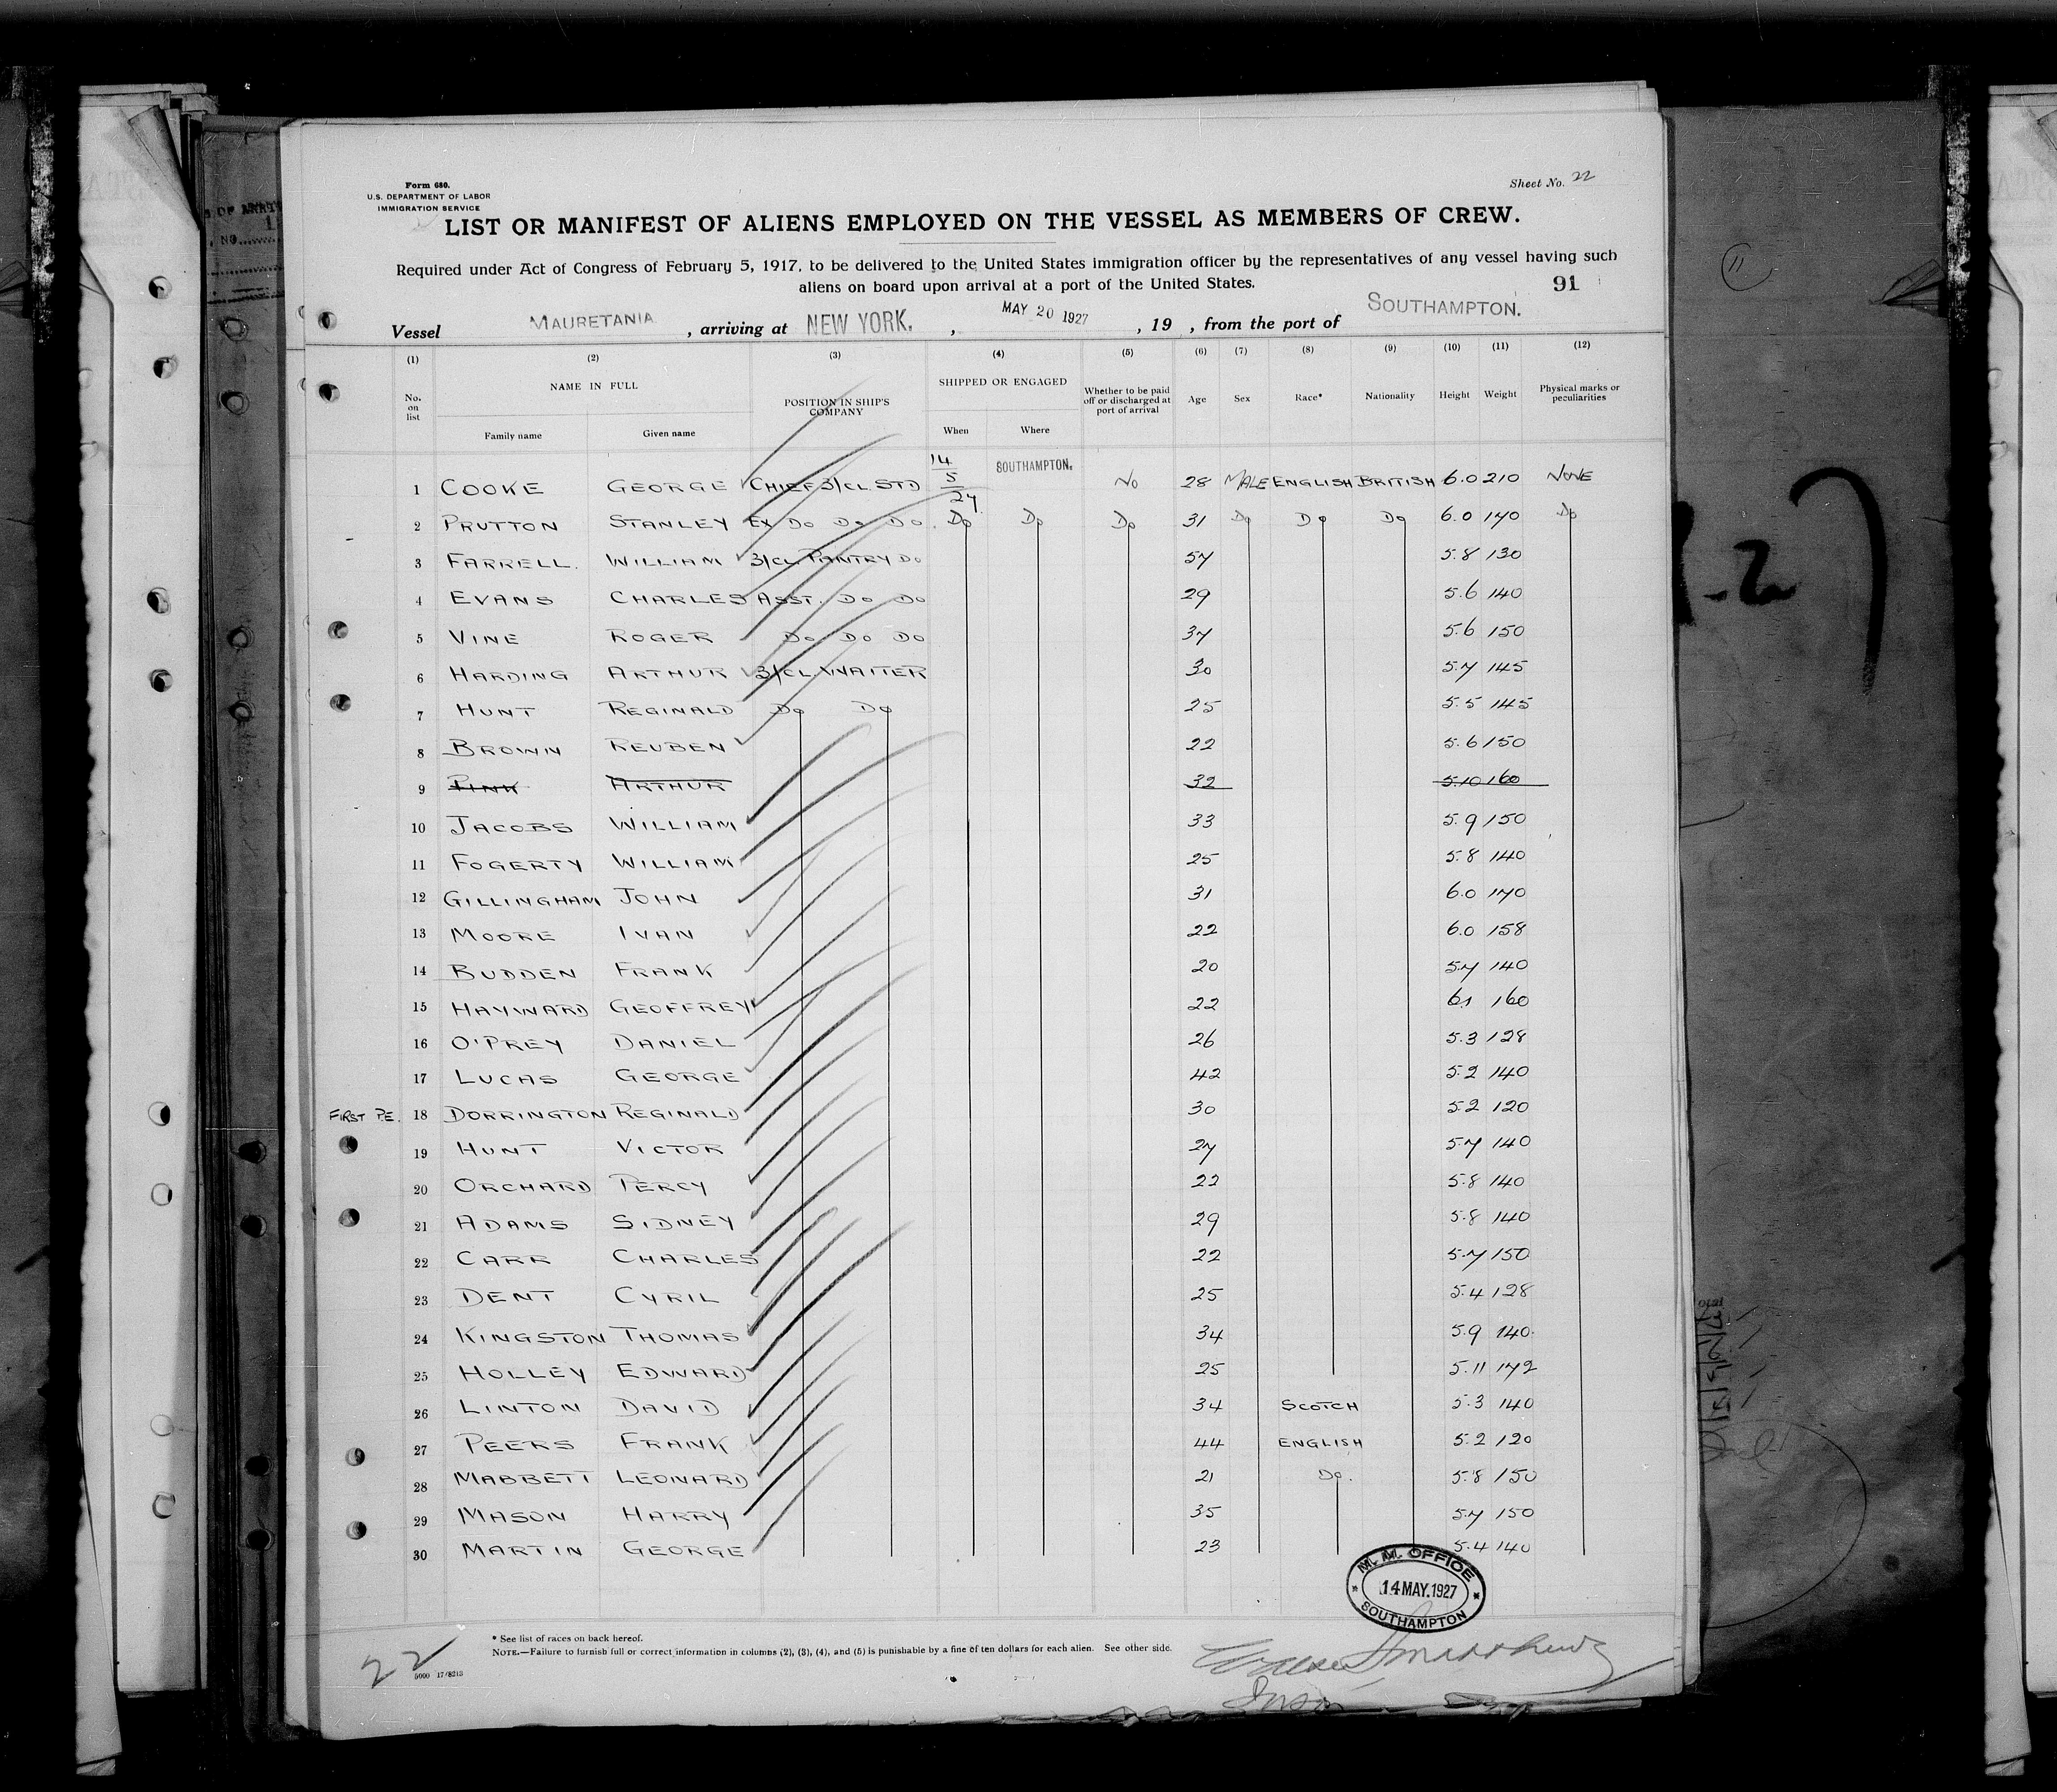 Form 680.
U.S. DEPARTMENT OF LABOR
IMMIGRATION SERVICE
Sheet No. 22
LIST OR MANIFEST OF ALIENS EMPLOYED ON THE VESSEL AS MEMBERS OF CREW.
Required under Act of Congress of February 5, 1917, to be delivered to the United States immigration officer by the representatives of any vessel having such
aliens on board upon arrival at a port of the United States.
91
Vessel MAURETANIA, arriving at NEW YORK. , MAY 20 1927 , 19 , from the port of SOUTHAMPTON.
(1) (2) (3) (4) (5) (6) (7) (8) (9) (10) (11) (12)
No. on list NAME IN FULL Family name Given name POSITION IN SHIP'S COMPANY SHIPPED OR ENGAGED When Where Whether to be paid off or discharged at port of arrival Age Sex Race* Nationality Height Weight Physical marks or peculiarities
1 COOKE GEORGE CHIEF 3/CL. STD 14/5/27 SOUTHAMPTON. No 28 MALE ENGLISH BRITISH 6.0 210 NONE
2 PRUTTON STANLEY Ex Do Do Do. Do Do Do 31 Do Do Do 6.0 170 Do
3 FARRELL. WILLIAM 3/CL. PANTRY Do 57 5.8 130
4 EVANS CHARLES ASST. Do Do 29 5.6 140
5 VINE ROGER Do Do Do 37 5.6 150
6 HARDING ARTHUR 3/CL. WAITER 30 5.7 145
7 HUNT REGINALD Do Do 25 5.5 145
8 BROWN REUBEN 22 5.6 150
9 PINK ARTHUR 32 5.10 160
10 JACOBS WILLIAM 33 5.9 150
11 FOGERTY WILLIAM 25 5.8 140
12 GILLINGHAM JOHN 31 6.0 170
13 MOORE IVAN 22 6.0 158
14 BUDDEN FRANK 20 5.7 140
15 HAYWARD GEOFFREY 22 6.1 160
16 O'PREY DANIEL 26 5.3 128
17 LUCAS GEORGE 42 5.2 140
FIRST P.E. 18 DORRINGTON REGINALD 30 5.2 120
19 HUNT VICTOR 27 5.7 140
20 ORCHARD PERCY 22 5.8 140
21 ADAMS SIDNEY 29 5.8 140
22 CARR CHARLES 22 5.7 150
23 DENT CYRIL 25 5.4 128
24 KINGSTON THOMAS 34 5.9 140.
25 HOLLEY EDWARD 25 5.11 172
26 LINTON DAVID 34 SCOTCH 5.3 140
27 PEERS FRANK 44 ENGLISH 5.2 120
28 MABBETT LEONARD 21 Do. 5.8 150
29 MASON HARRY 35 5.7 150
30 MARTIN GEORGE 23 5.4 140
M. M. OFFICE
14 MAY. 1927
SOUTHAMPTON
* See list of races on back hereof.
NOTE.—Failure to furnish full or correct information in columns (2), (3), (4), and (5) is punishable by a fine of ten dollars for each alien. See other side.
22
5000 17/8213